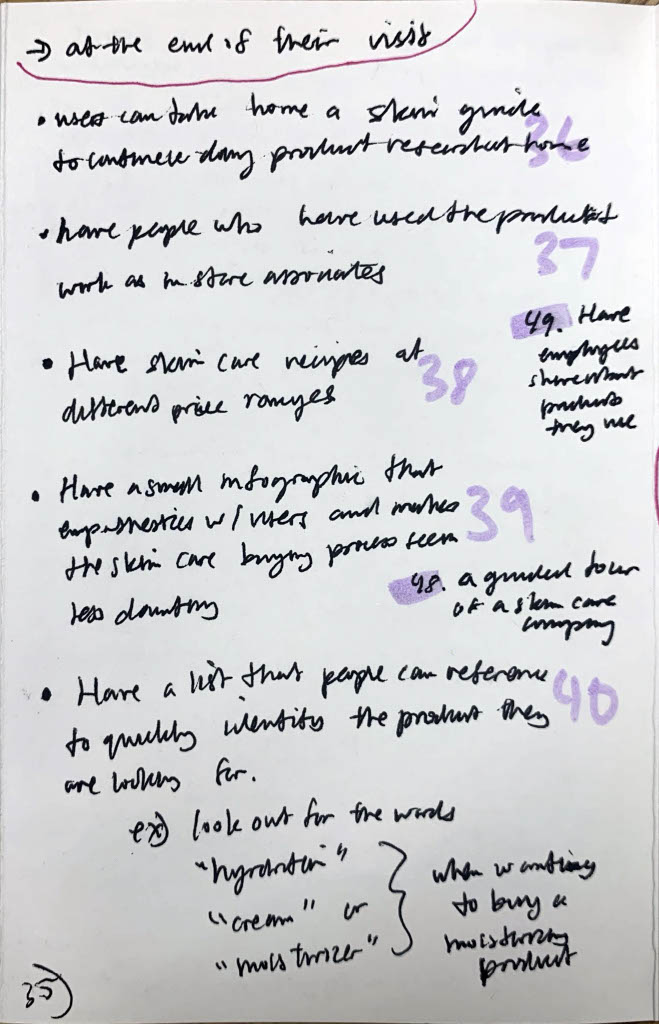 → at the end of their visit
• users can take home a skin guide
to continue doing product research at home
36
• have people who have used the product
work as in store associates
37
49. Have
employees
share what
products
they use
• Have skin care recipes at
different price ranges
38
• Have a small infographic that
empathetics w/ users and makes
the skin care buying process seem
less daunting
39
48. a guided tour
of a skin care
company
• Have a list that people can reference
to quickly identify the product they
are looking for.
40
ex) look out for the words
"hydration"
"cream" or
"moisturizer"
when wanting
to buy a
moisturizing
product
35)